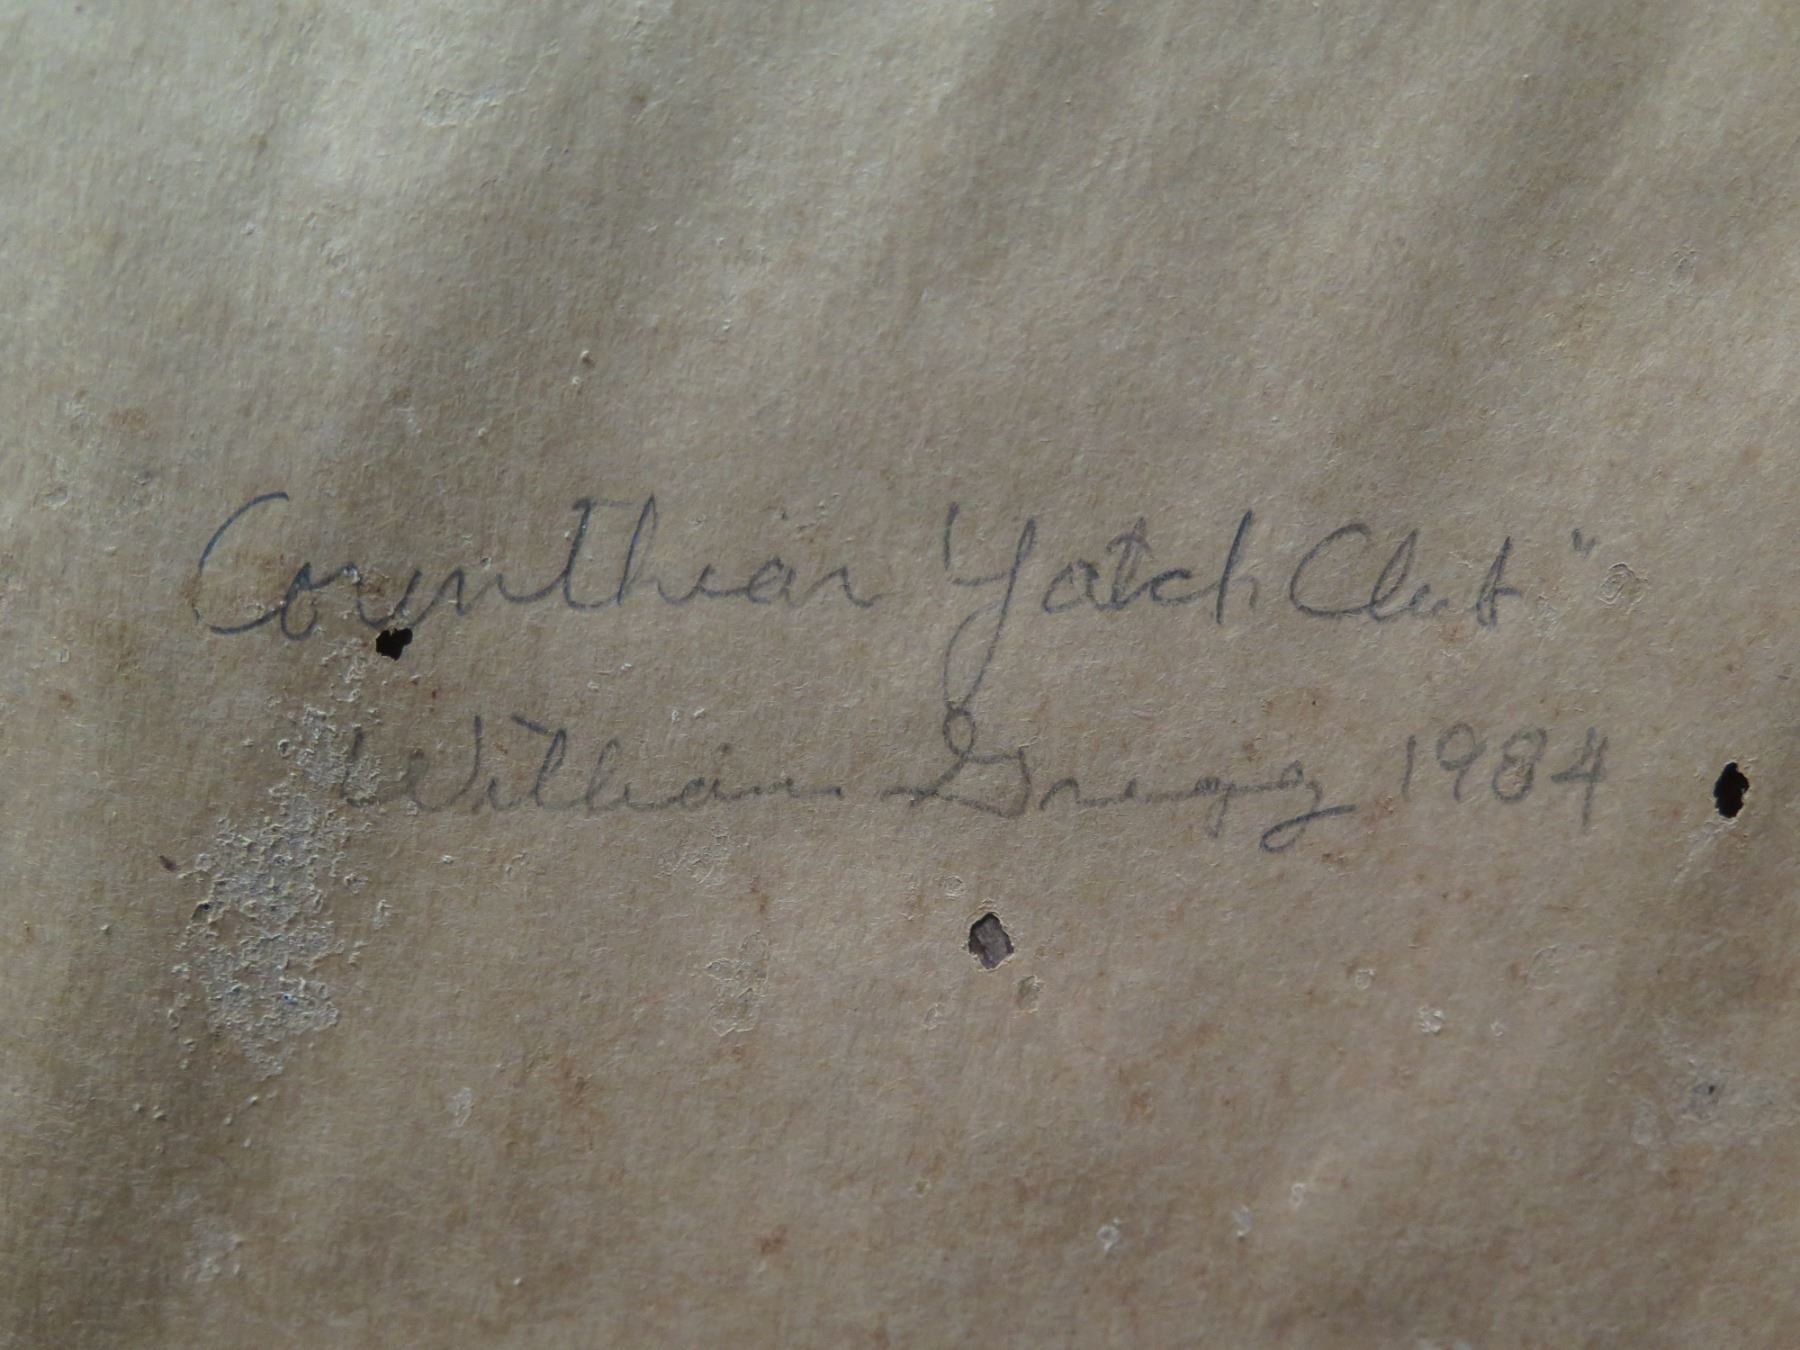 Corinthian "Yatch Club"
William Gregg 1984